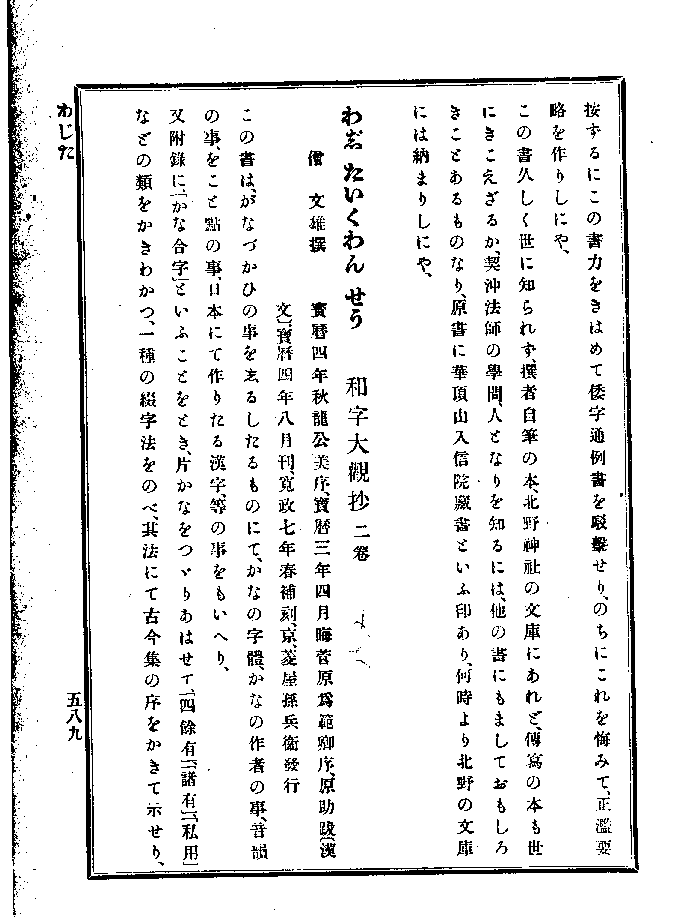 按ずるにこの書力をきはめて倭字通例書を駁擊せり、のちにこれを悔みて、正濫要
略を作りしにや、
この書久しく世に知られず、撰者自筆の本、北野神社の文庫にあれど、傳寫の本も世
にきこえざるか、契沖法師の學問、人となりを知るには、他の書にもましておもしろ
きことあるものなり、原書に華頂山入信院藏書といふ印あり、何時より北野の文庫
には納まりしにや、
わじたいくわんせう 和字大觀抄 二卷
僧 文雄撰 寶曆四年秋龍公美序、寶曆三年四月晦菅原爲範卿序、原助跋(漢
文)寶曆四年八月刊、寬政七年春補刻、京、菱屋孫兵衞發行
この書は、がなづかひの事を志るしたるものにて、かなの字體、かなの作者の事、音韻
の事、をこと點の事、日本にて作りたる漢字、等の事をもいへり、
又附錄に「かな合字」といふことをとき、片かなをつゞりあはせて、「四餘有」「諸有」「私用」
などの類をかきわかつ、一種の綴字法をのべ、其法にて古今集の序をかきて示せり、
わじた
五八九